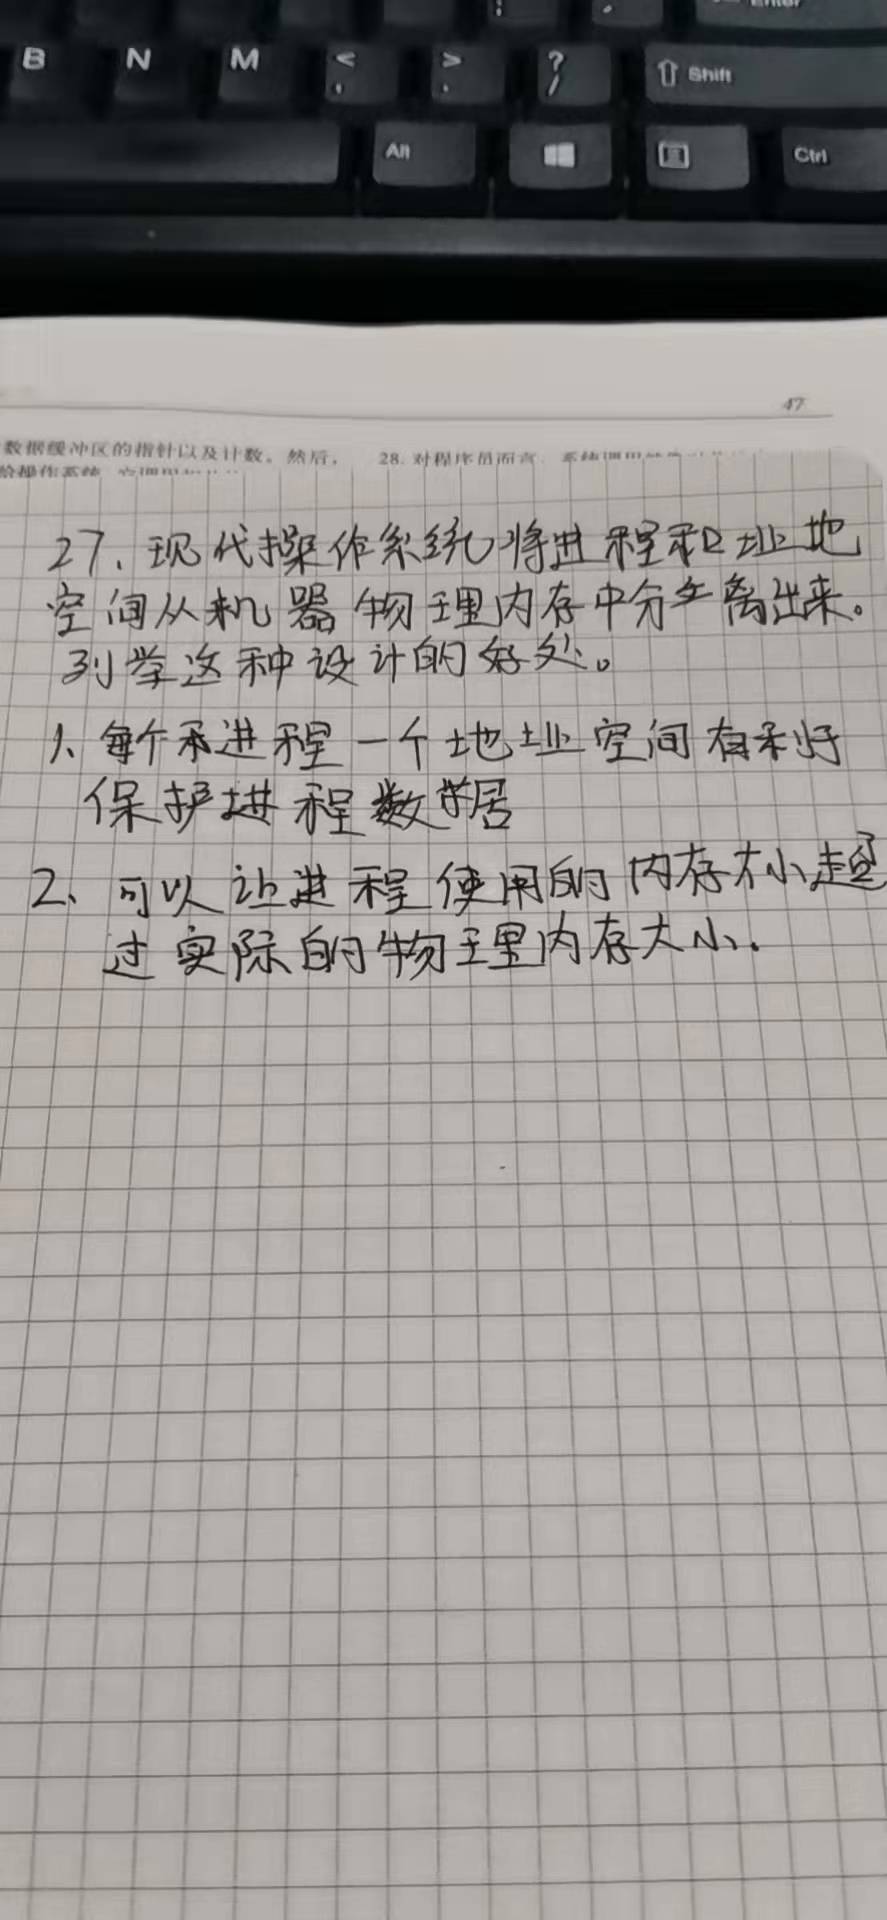 Enter
B N M < , > . ? / Shift
Alt Ctrl
47
数据缓冲区的指针以及计数。然后, 28. 对程序员而言
给操作系统
27、现代操作系统将进程和址地
空间从机器物理内存中分离出来。
列举这种设计的好处。
1、每个进程一个地址空间有利于
保护进程数据
2、可以让进程使用的内存大小超
过实际的物理内存大小.